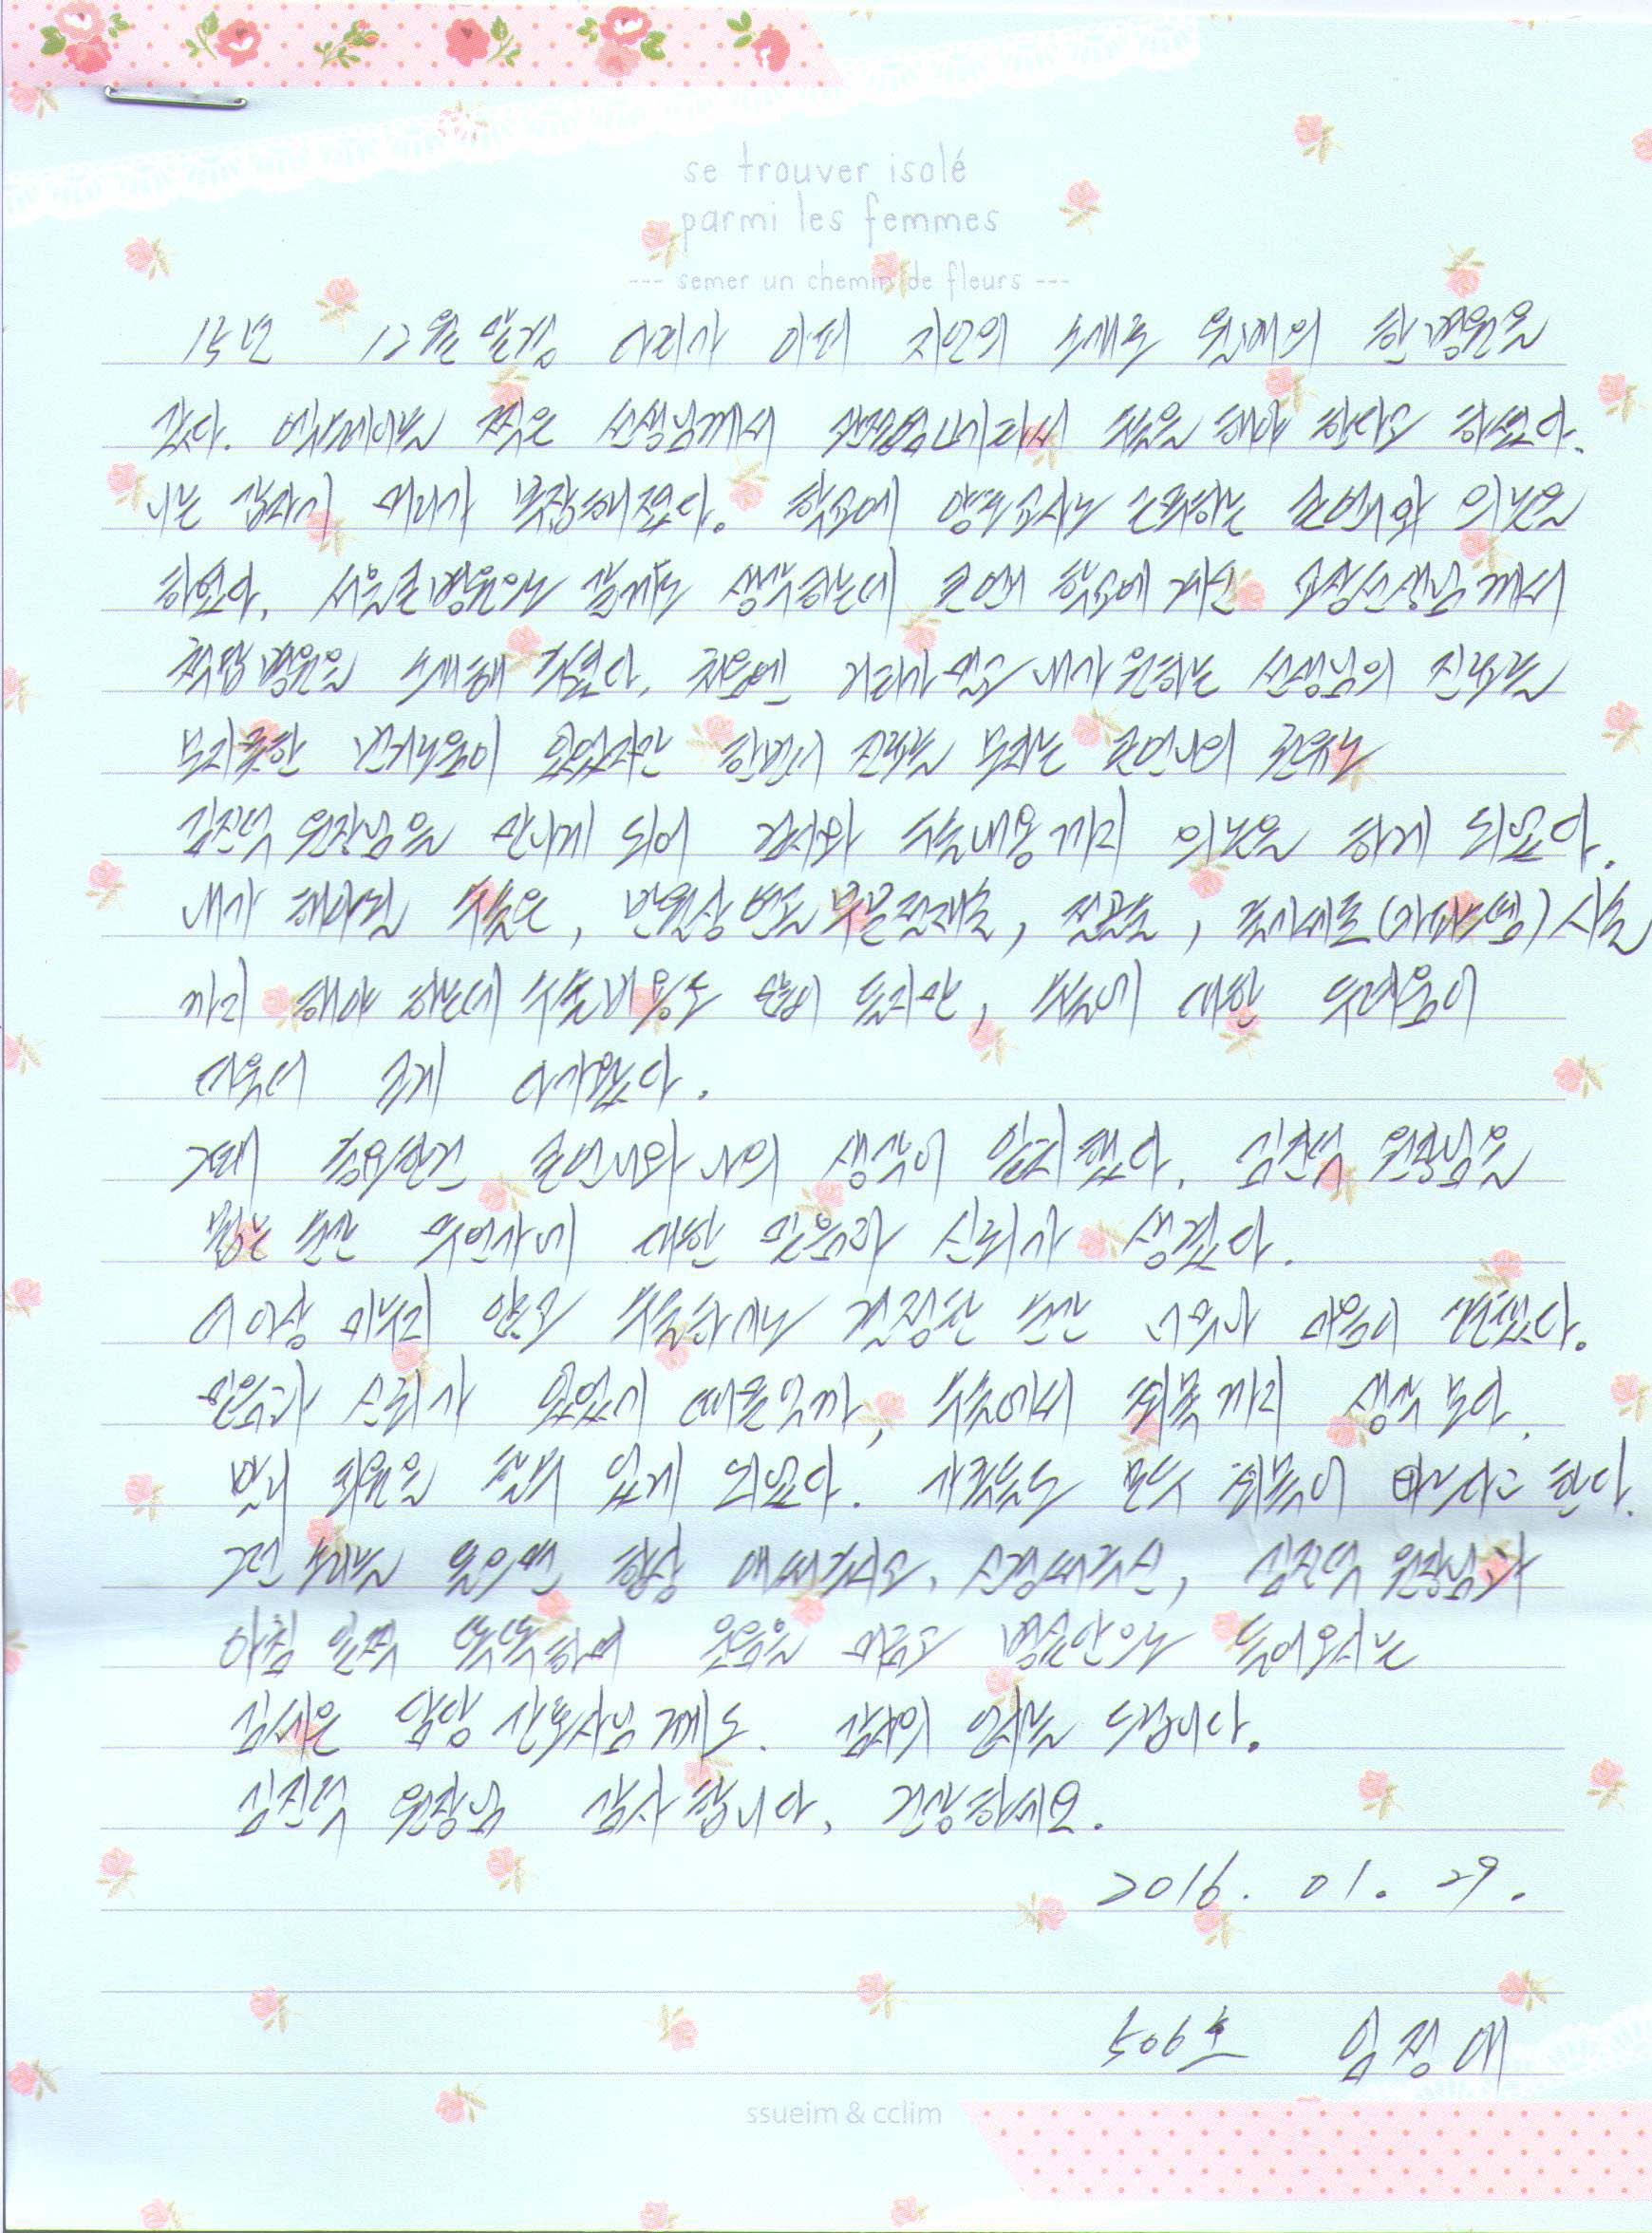 se trouver isolé
parmi les femmes
--- semer un chemin de fleurs ---
15년 12월 말경 다리가 아파 지인의 소개로 원예의 한 병원을
갔다. 엑스레이를 찍은 선생님께서 수술을 해야 한다고 하셨다.
나는 갑자기 머리가 복잡해졌다. 학교에 영양교사로 근무하는 큰언니와 의논을
하였다. 서울큰병원으로 갈까도 생각하는데 큰언니 학교에 계신 교장선생님께서
척탑병원을 소개해 주셨다. 처음엔 거리가 멀고 내가 원하는 선생님의 진료를
보지못한 번거로움이 있었지만 한번더 진료를 보자는 큰언니의 권유로
김진덕 원장님을 만나게 되어 검사와 수술내용까지 의논을 하게 되었다.
내가 해야될 수술은, 반월상 연골 부분절제술, 절골술, 줄기세포(카티스템) 시술
까지 해야 하는데 수술비용도 많이 들지만, 수술에 대한 두려움이
더욱더 크게 다가왔다.
그때 중요한건 큰언니와 나의 생각이 일치했다. 김진덕 원장님을
뵙는 순간 무언가에 대한 믿음과 신뢰가 생겼다.
더이상 미루지 않고 수술하기로 결정한 순간 너무나 마음이 편했다.
믿음과 신뢰가 있었기 때문일까, 수술에서 회복까지 생각 보다.
빨리 퇴원을 할수 있게 되었다. 가족들도 모두 회복이 빠르다고 한다.
그런 소리를 들으면 항상 애써주시고, 신경써주신, 김진덕 원장님과
아침 일찍 똑똑하며 웃음을 머금고 병실안으로 들어오시는
김시은 담당 간호사님께도. 감사의 인사를 드립니다.
김진덕 원장님 감사합니다. 건강하세요.
2016. 01. 29.
506호 임정애
ssueim & cclim